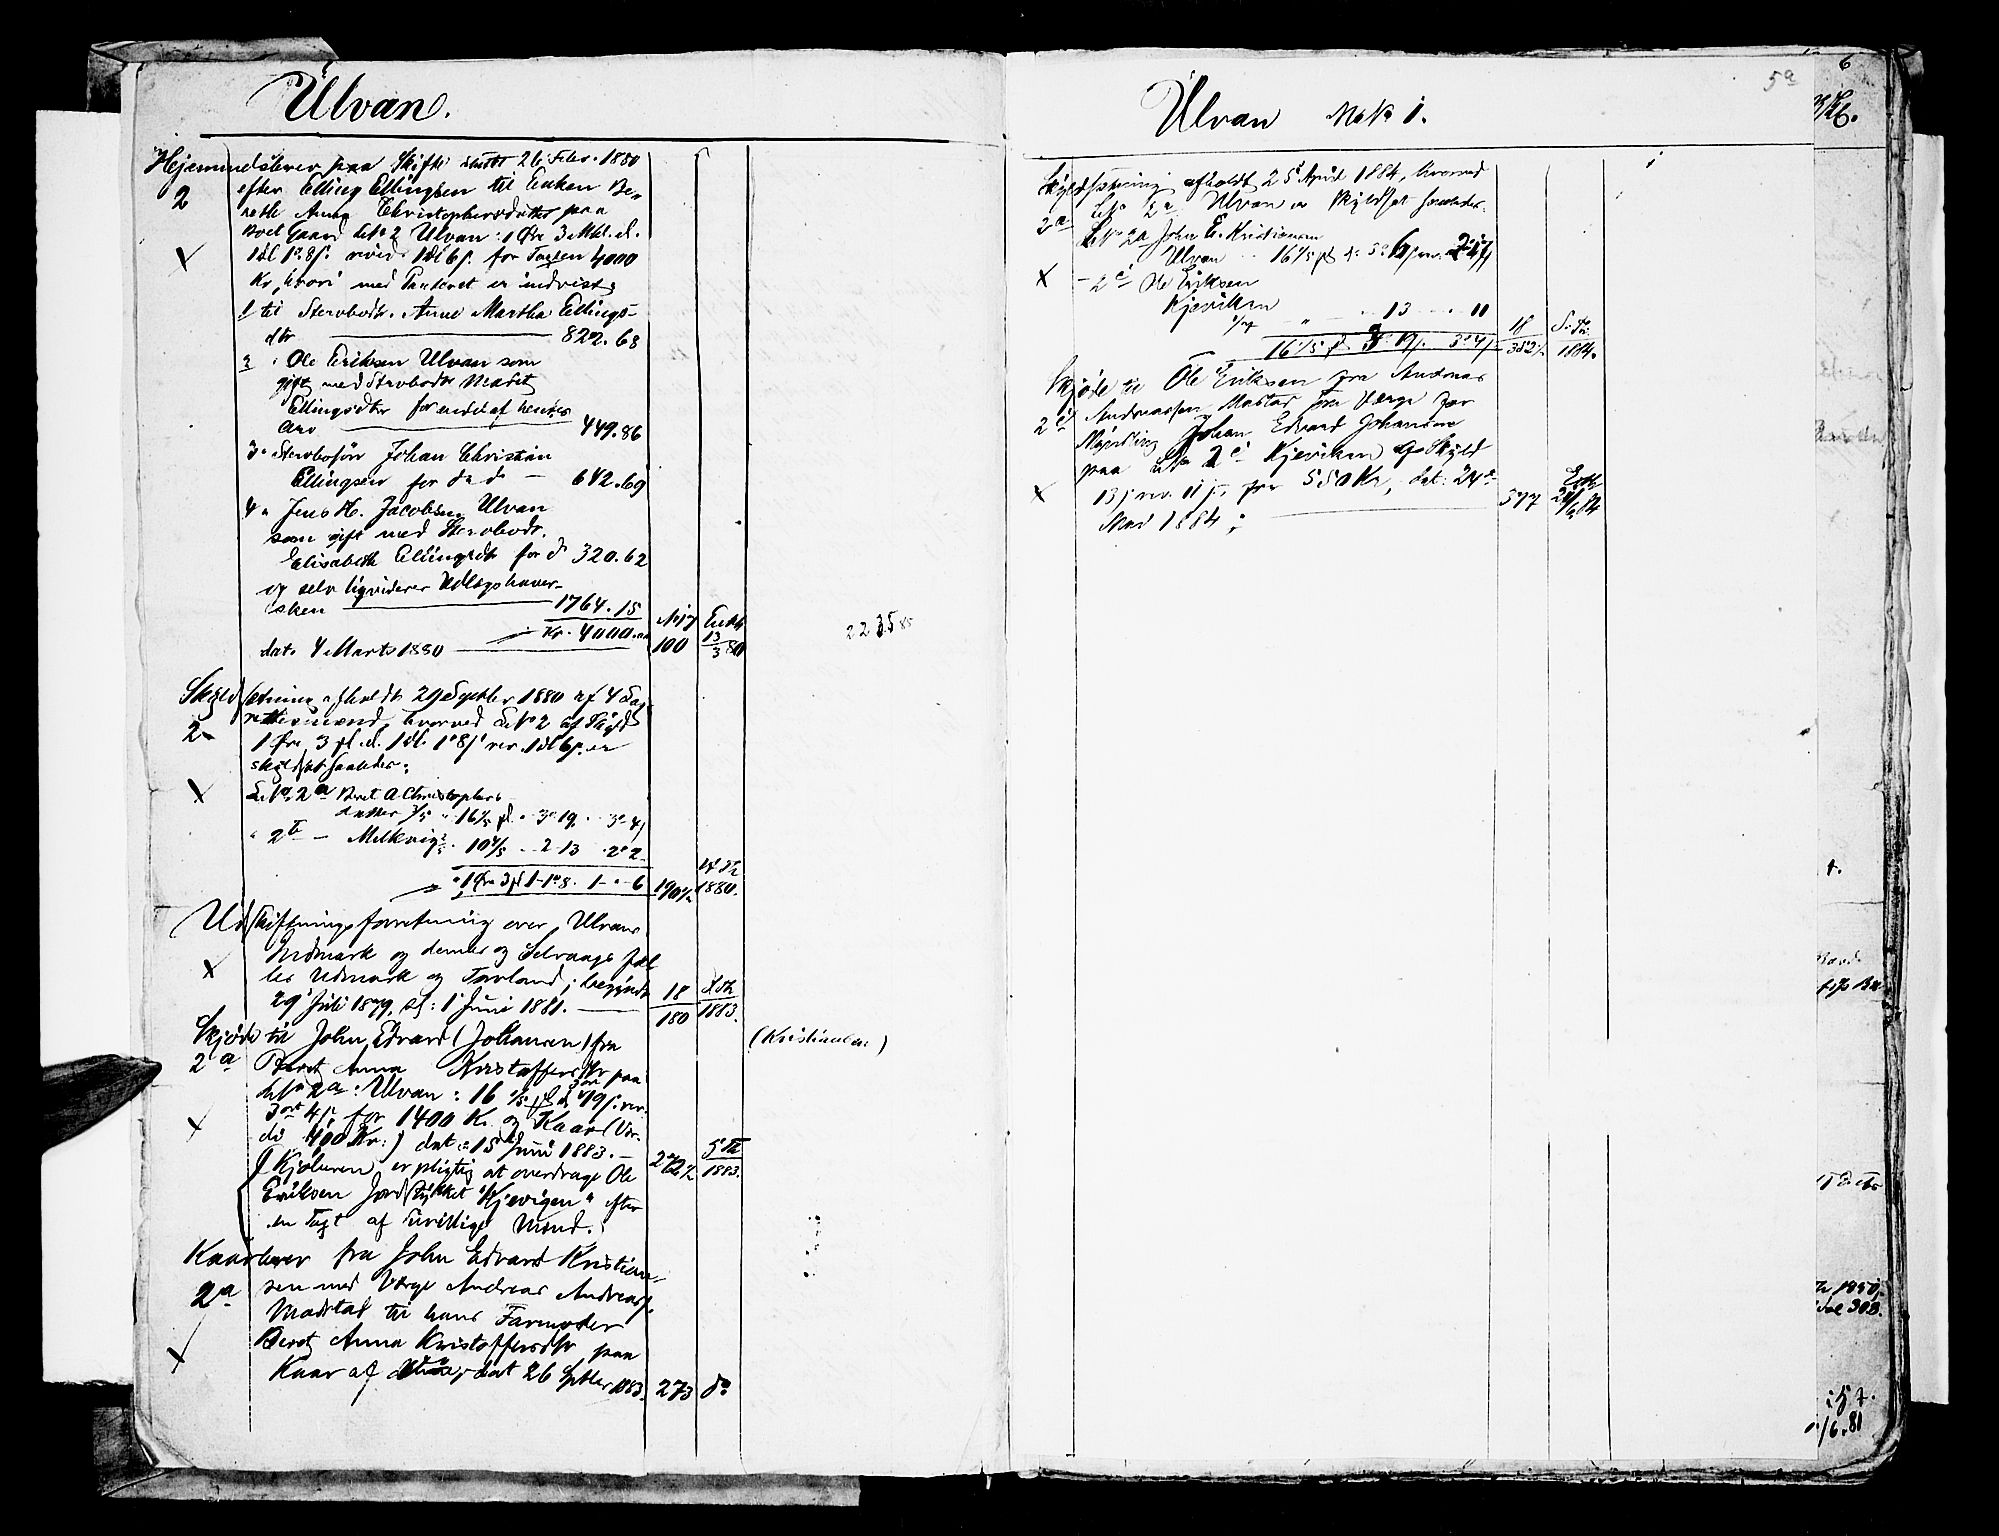 Ulvan.
Hjemmelsbrev paa Skifte sluttet 26 Febr. 1880
2 efter Elling Ellingsen til Enken Be-
reth Anna Christophersdatter paa
Boet Gaard LNo 2 Ulvan: 1 Øre 3 Mkl. d.
1 dl 1 o. 8 s. revid. 1 dl 6 s. for Taxten 4000
Kr, hvori med Panteret er indvist:
1 til Stervbodtr. Anne Martha Ellings-
dtr 822.68
2 " Ole Eriksen Ulvan som
gift med Stervbodtr Maset
Ellingsdtr for endel af hendes
Arv 449.86
3 " Stervbosøn Johan Christian
Ellingsen for do do — 642.69
4 " Jens H. Jacobsen Ulvan
som gift med Stervbodt.
Elisabeth Ellingsdtr for do 320.62
og selv liqviderer Udlægshaver-
sken 1764.15
Kr. 4000.00
dat. 4 Marts 1880 No 17 100 Extr 13/3 80
2235 85
Skyldsætning afholdt 29 Septbr 1880 af 4 Lag-
2. rettesmænd, hvorved LNo 2 af Skyld
1 Øre 3 pl. d. 1 dl. 1 o 8 s rev. 1 dl 6 s. er
skyldsat saaledes:
LNo. 2a Beret A Christophers-
datter 3/5 " 16 1/5 pl. " 3 " 19. " 3 " 4
" 2b — Melkvig 2/5 " 10 4/5 " 2 13 " 2 " 2
" 1 Øre 3 pl 1 - 1 o 8. 1 - " - 6 190 1/2 1880.
Udskiftningsforretning over Ulvans
Indmark og dennes og Selvaags fæl-
les Udmark og Torvland, begyndt
29 Juli 1879, sl: 1 Juni 1881. 18/180 1883.
Skjøde til John Edvard (Johansen) fra (Kristiansen)
2a Beret Anna Kristoffersdtr paa
LNo 2a. Ulvan: 16 1/5 pl d. 3 ort 19 s. rev.
3 ort 4 s. for 1400 Kr. og Kaar (Vær-
di 400 Kr:) dat: 15 Juni 1883. — 272 1/2 1883.
Kjøberen er pligtig at overdrage Ole
Eriksen Jordstykket "Kjevigen" efter
en Taxt af Uvillige Mænd.
Kaarbrev fra John Edvard Kristian-
2a sen med Værge Andreas Andreas.
Mastad til hans Farmoder
Beret Anna Kristoffersdtr paa
Kaar af dat 26 Septbr 1883. 273 do
5a
Ulvan MNo 1.
Skyldsætning afholdt 25 April 1884, hvorved
2a LNo 2a Ulvan er skyldsat saaledes:
LNo 2a John E. Kristiansen
Ulvan
— 2c Ole Eriksen
Kjeviken
" . 13 . . . 11
16 1/5 pl 3 " 19/. 3 " 4/. 18/382 1/2 1884.
Skjøde til Ole Eriksen fra Andreas
2c Andreassen Mastad som Værge for
Myndling Johan Edvard Johansen
paa LNo 2c Kjeviken af Skyld
13 s rev. 11 s, for 550 Kr, dat: 24de
Mai 1884; 377 Extr 24/5 84
6